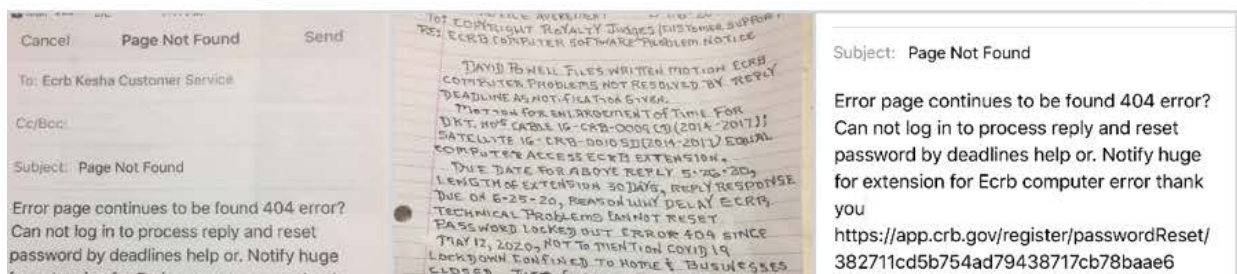 Cancel Page Not Found Send
To: Ecrb Kesha Customer Service
Cc/Bcc:
Subject: Page Not Found
Error page continues to be found 404 error?
Can not log in to process reply and reset
password by deadlines help or. Notify huge
TO: COPYRIGHT ROYALTY Judges/CUSTOMER SUPPORT
RE: ECRB COMPUTER SOFTWARE PROBLEM NOTICE
DAVID POWELL FILES WRITTEN MOTION ECRB
COMPUTER PROBLEMS NOT RESOLVED BY REPLY
DEADLINE AS NOTIFICATION GIVEN.
MOTION FOR ENLARGEMENT OF TIME FOR
DKT. NO'S CABLE 16-CRB-0009 CD (2014-2017);
SATELLITE 16-CRB-0010 SD (2014-2017) EQUAL
COMPUTER ACCESS ECRB EXTENSION.
DUE DATE FOR ABOVE REPLY 5-26-20,
LENGTH OF EXTENSION 30 DAYS, REPLY RESPONSE
DUE ON 6-25-20, REASON WHY DELAY ECRB
TECHNICAL PROBLEMS CANNOT RESET
PASSWORD LOCKED OUT ERROR 404 SINCE
MAY 12, 2020, NOT TO MENTION COVID 19
LOCKDOWN CONFINED TO HOME & BUSINESSES
Subject: Page Not Found
Error page continues to be found 404 error?
Can not log in to process reply and reset
password by deadlines help or. Notify huge
for extension for Ecrb computer error thank
you
https://app.crb.gov/register/passwordReset/
382711cd5b754ad79438717cb78baae6